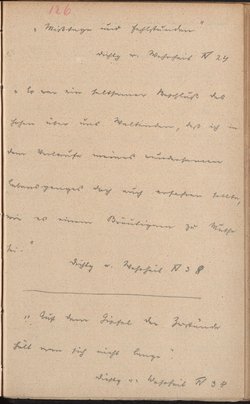 126
„Mißtage und Fehlstunden“
Dichtg u. Wahrheit IV 24
„Es war ein seltsamer Beschluß des
hohen über uns Waltenden, daß ich in
dem Verlaufe meines wundersamen
Lebensganges doch auch erfahren sollte,
wie es einem Bräutigam zu Muthe
sei.“
Dichtg u. Wahrheit IV 38
„Auf dem Gipfel der Zustände
hält man sich nicht lange“.
Dichtg u. Wahrheit IV 38